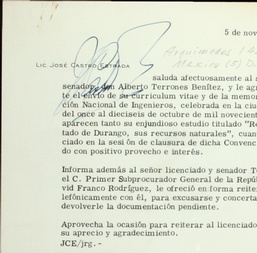 5 de nov
Arquímedes
México (5) D.
LIC JOSÉ CASTRO ESTRADA
saluda afectuosamente al s
senador, don Alberto Terrones Benítez, y le ag
te el envío de su curriculum vitae y de la memor
ción Nacional de Ingenieros, celebrada en la ciu
del once al dieciseis de octubre de mil novecien
aparecen tanto su enjundioso estudio titulado "Re
tado de Durango, sus recursos naturales", cuan
ciado en la sesión de clausura de dicha Convenc
do con positivo provecho e interés.
Informa además al señor licenciado y senador T
el C. Primer Subprocurador General de la Repú
vid Franco Rodríguez, le ofreció en forma reiter
lefónicamente con él, para excusarse y concerta
devolverle la documentación pendiente.
Aprovecha la ocasión para reiterar al licenciado
su aprecio y agradecimiento.
JCE/jrg.-